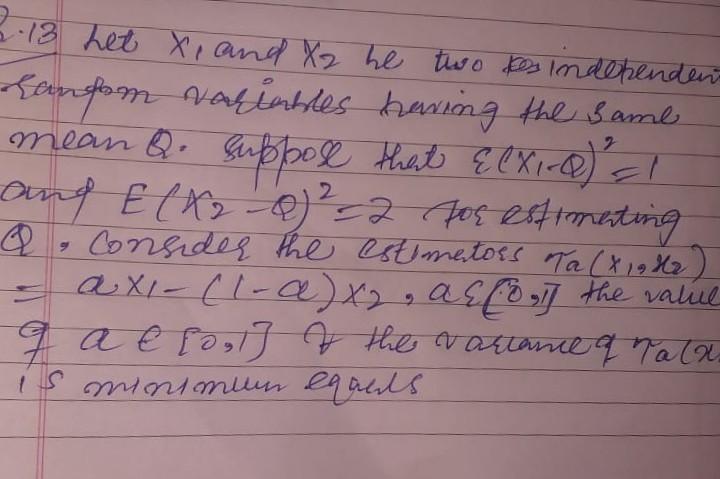 2.13 Let X₁ and X₂ be two independent
random variables having the same
mean Q. Suppose that E(X₁-Q)² = 1
and E(X₂-Q)² = 2 for estimating
Q, Consider the estimators Ta(X₁,X₂)
= aX₁-(1-a)X₂, aε[0,1] the value
of a ∈ [0,1] the variance of Ta(x
is minimum equals